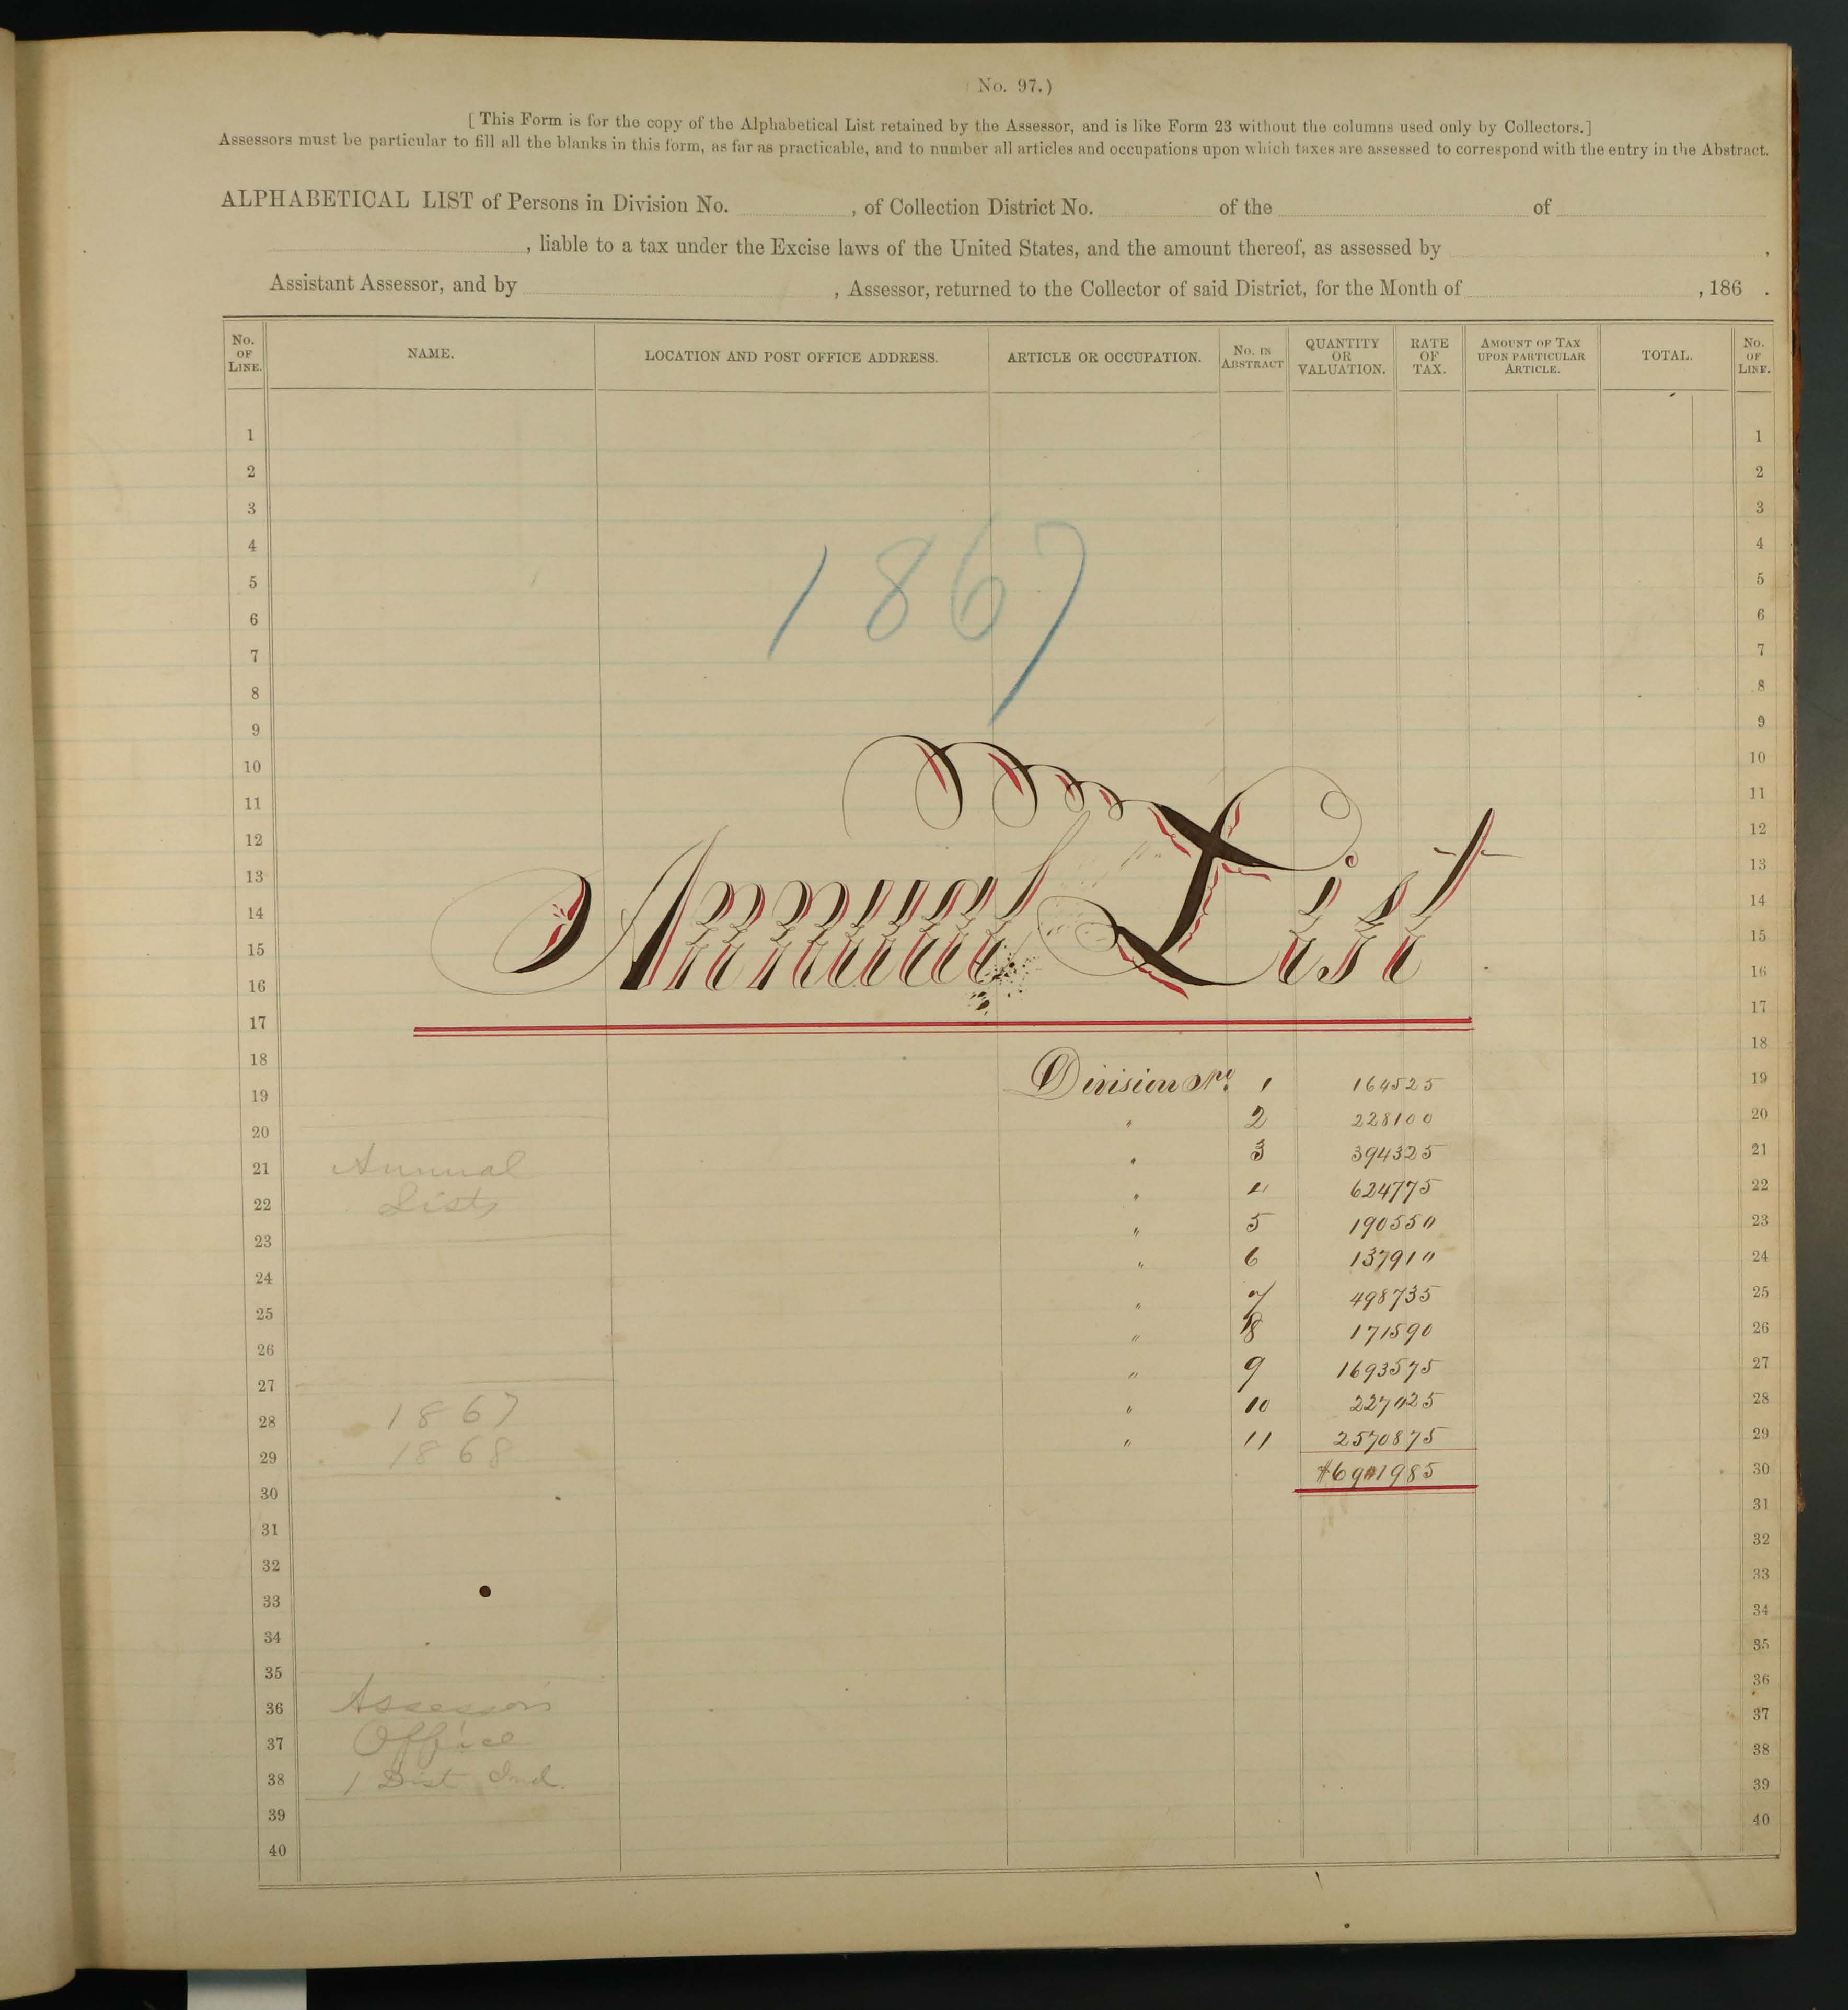 No. 97.)
[ This Form is for the copy of the Alphabetical List retained by the Assessor, and is like Form 23 without the columns used only by Collectors.]
Assessors must be particular to fill all the blanks in this form, as far as practicable, and to number all articles and occupations upon which taxes are assessed to correspond with the entry in the Abstract.
ALPHABETICAL LIST of Persons in Division No. , of Collection District No. of the of
, liable to a tax under the Excise laws of the United States, and the amount thereof, as assessed by ,
Assistant Assessor, and by , Assessor, returned to the Collector of said District, for the Month of , 186 .
No. OF LINE. NAME. LOCATION AND POST OFFICE ADDRESS. ARTICLE OR OCCUPATION. No. IN ABSTRACT QUANTITY OR VALUATION. RATE OF TAX. AMOUNT OF TAX UPON PARTICULAR ARTICLE. TOTAL. No. OF LINE.
1 1
2 2
3 3
4 4
5 5
6 6
7 7
8 8
9 9
10 10
11 11
12 12
13 13
14 14
15 15
16 16
17 17
18 18
19 19
20 20
21 21
22 22
23 23
24 24
25 25
26 26
27 27
28 28
29 29
30 30
31 31
32 32
33 33
34 34
35 35
36 36
37 37
38 38
39 39
40 40
1867
Annual List
Division No. 1 164525
" 2 228100
" 3 394325
" 4 624775
" 5 190550
" 6 137910
" 7 498735
" 8 171590
" 9 1693575
" 10 227025
" 11 2570875
$6901985
Annual
Lists
1867
1868
Assessors
Office
1 Dist Ind.